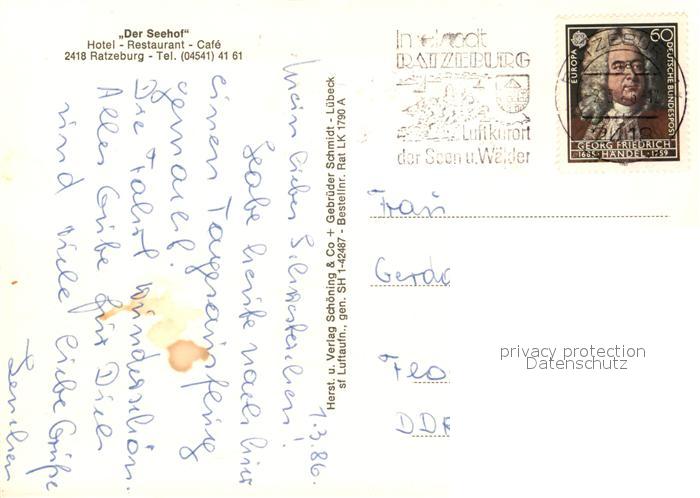 „Der Seehof"
Hotel - Restaurant - Café
2418 Ratzeburg - Tel. (04541) 41 61
1.3.86.
Mein liebes Schwesterchen!
Habe heute nach hier
einen Tagesausflug
gemacht.
Die Fahrt wunderschön.
Alles Gute für Dich
und viele liebe Grüße
Herst. u. Verlag Schöning & Co + Gebrüder Schmidt - Lübeck
sf Luftaufn., gen. SH 1-42487 - Bestellnr. Rat LK 1790 A
Inselstadt
RATZEBURG
Luftkurort
der Seen u. Wälder
EUROPA
60
DEUTSCHE BUNDESPOST
GEORG FRIEDRICH
1685 HÄNDEL 1759
Frau
Gerda
DDR
privacy protection
Datenschutz